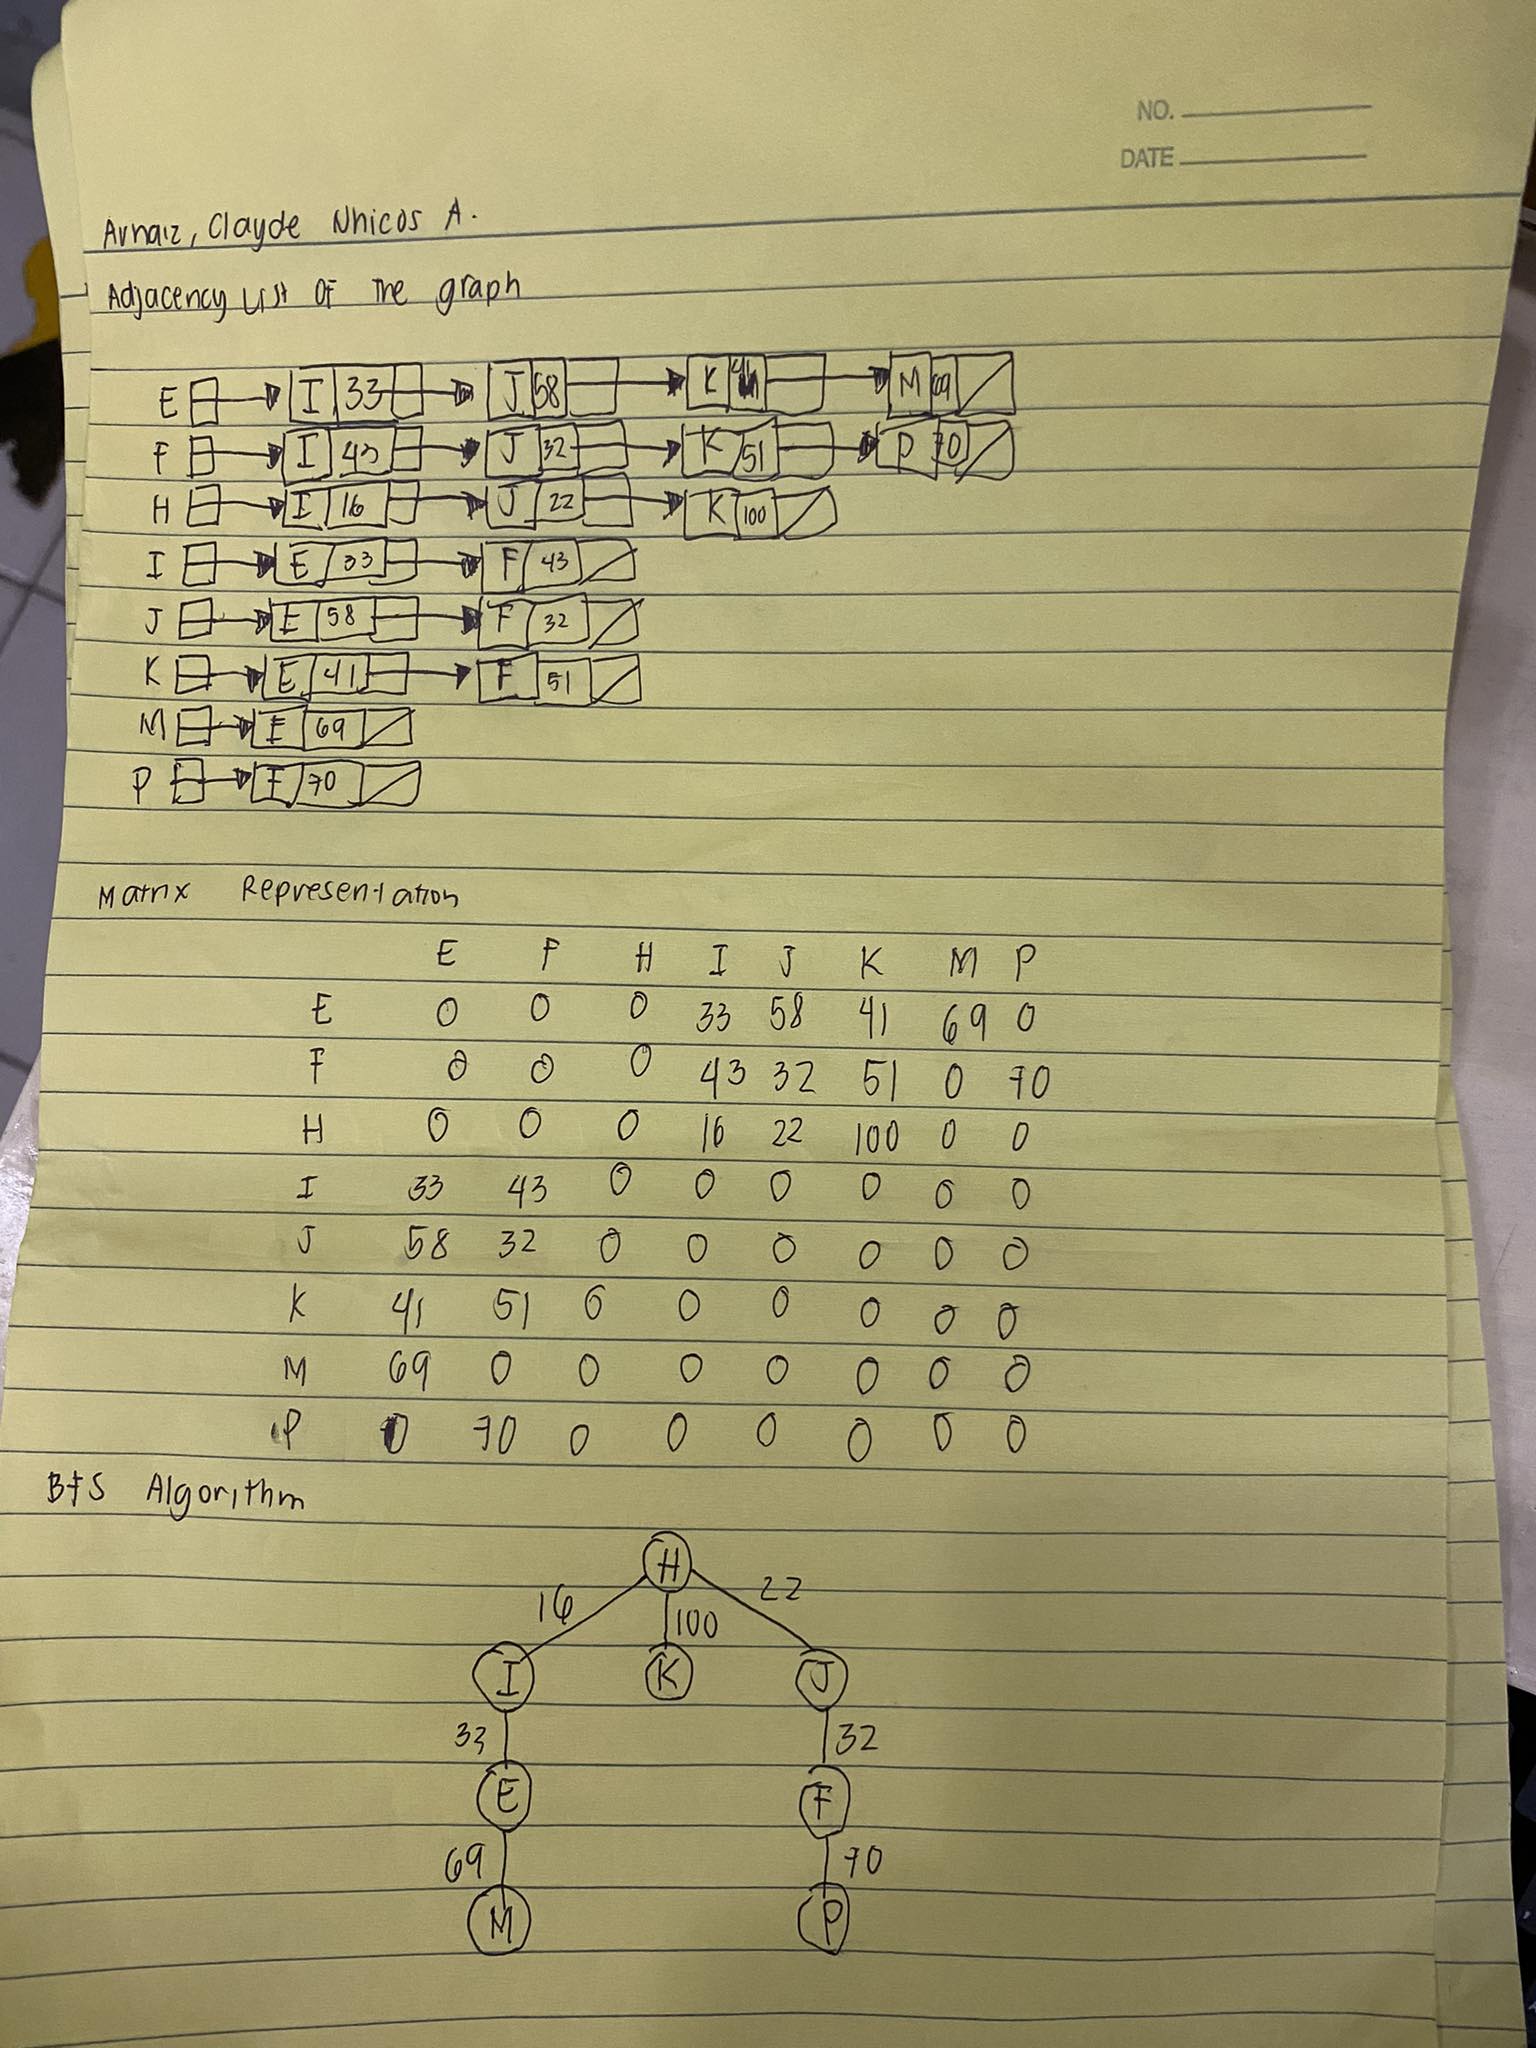 NO.
DATE
Arnaiz, Clayde Nhicos A.
Adjacency List OF The graph
E I 33 J 58 K M 69
F I 43 J 32 K 51 P 70
H I 16 J 22 K 100
I E 33 F 43
J E 58 F 32
K E 41 F 51
M E 69
P F 70
Matrix Representation
E F H I J K M P
E 0 0 0 33 58 41 69 0
F 0 0 0 43 32 51 0 70
H 0 0 0 16 22 100 0 0
I 33 43 0 0 0 0 0 0
J 58 32 0 0 0 0 0 0
K 41 51 0 0 0 0 0 0
M 69 0 0 0 0 0 0 0
P 0 70 0 0 0 0 0 0
BFS Algorithm
H
16 100 22
I K J
33 32
E F
69 70
M P